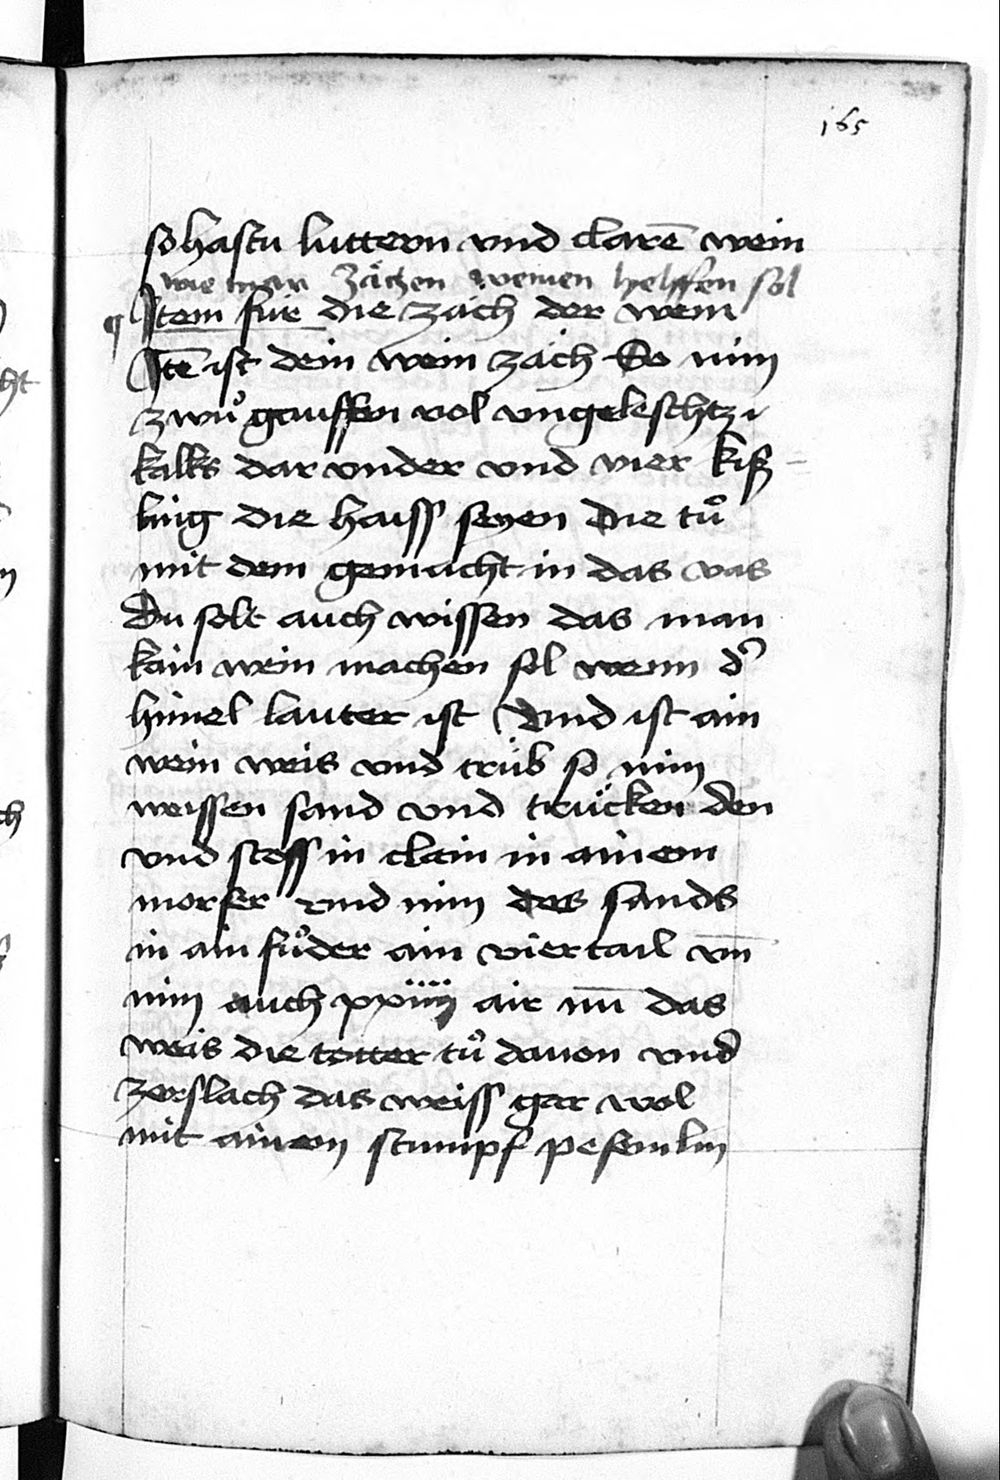 165
so hastu luttern vnd clarē wein
wie man zächen weinen helffen sol
¶ Item für die zäch der wein
Itē ist dein wein zäch So nim
zwuͦ gauffen vol vngeleschtz
kalks dar vnder vnd vier kiß
ling die haiss seyen die tuͦ
mit dem gemächt in das vas
Du solt auch wissen das man
kain wein machen sol wenn d'
himel lauter ist Vnd ist ain
wein weis vnd trüb so nim
weissen sand vnd trücken den
vnd stoss in clain in ainem
morser vnd nim des sands
in ain fuͦder ain viertail vn̄
nim auch xxiiij air nū das
weis die totter tuͦ dauon vnd
zerslach das weiss gar wol
mit ainem stumpf pesemlin